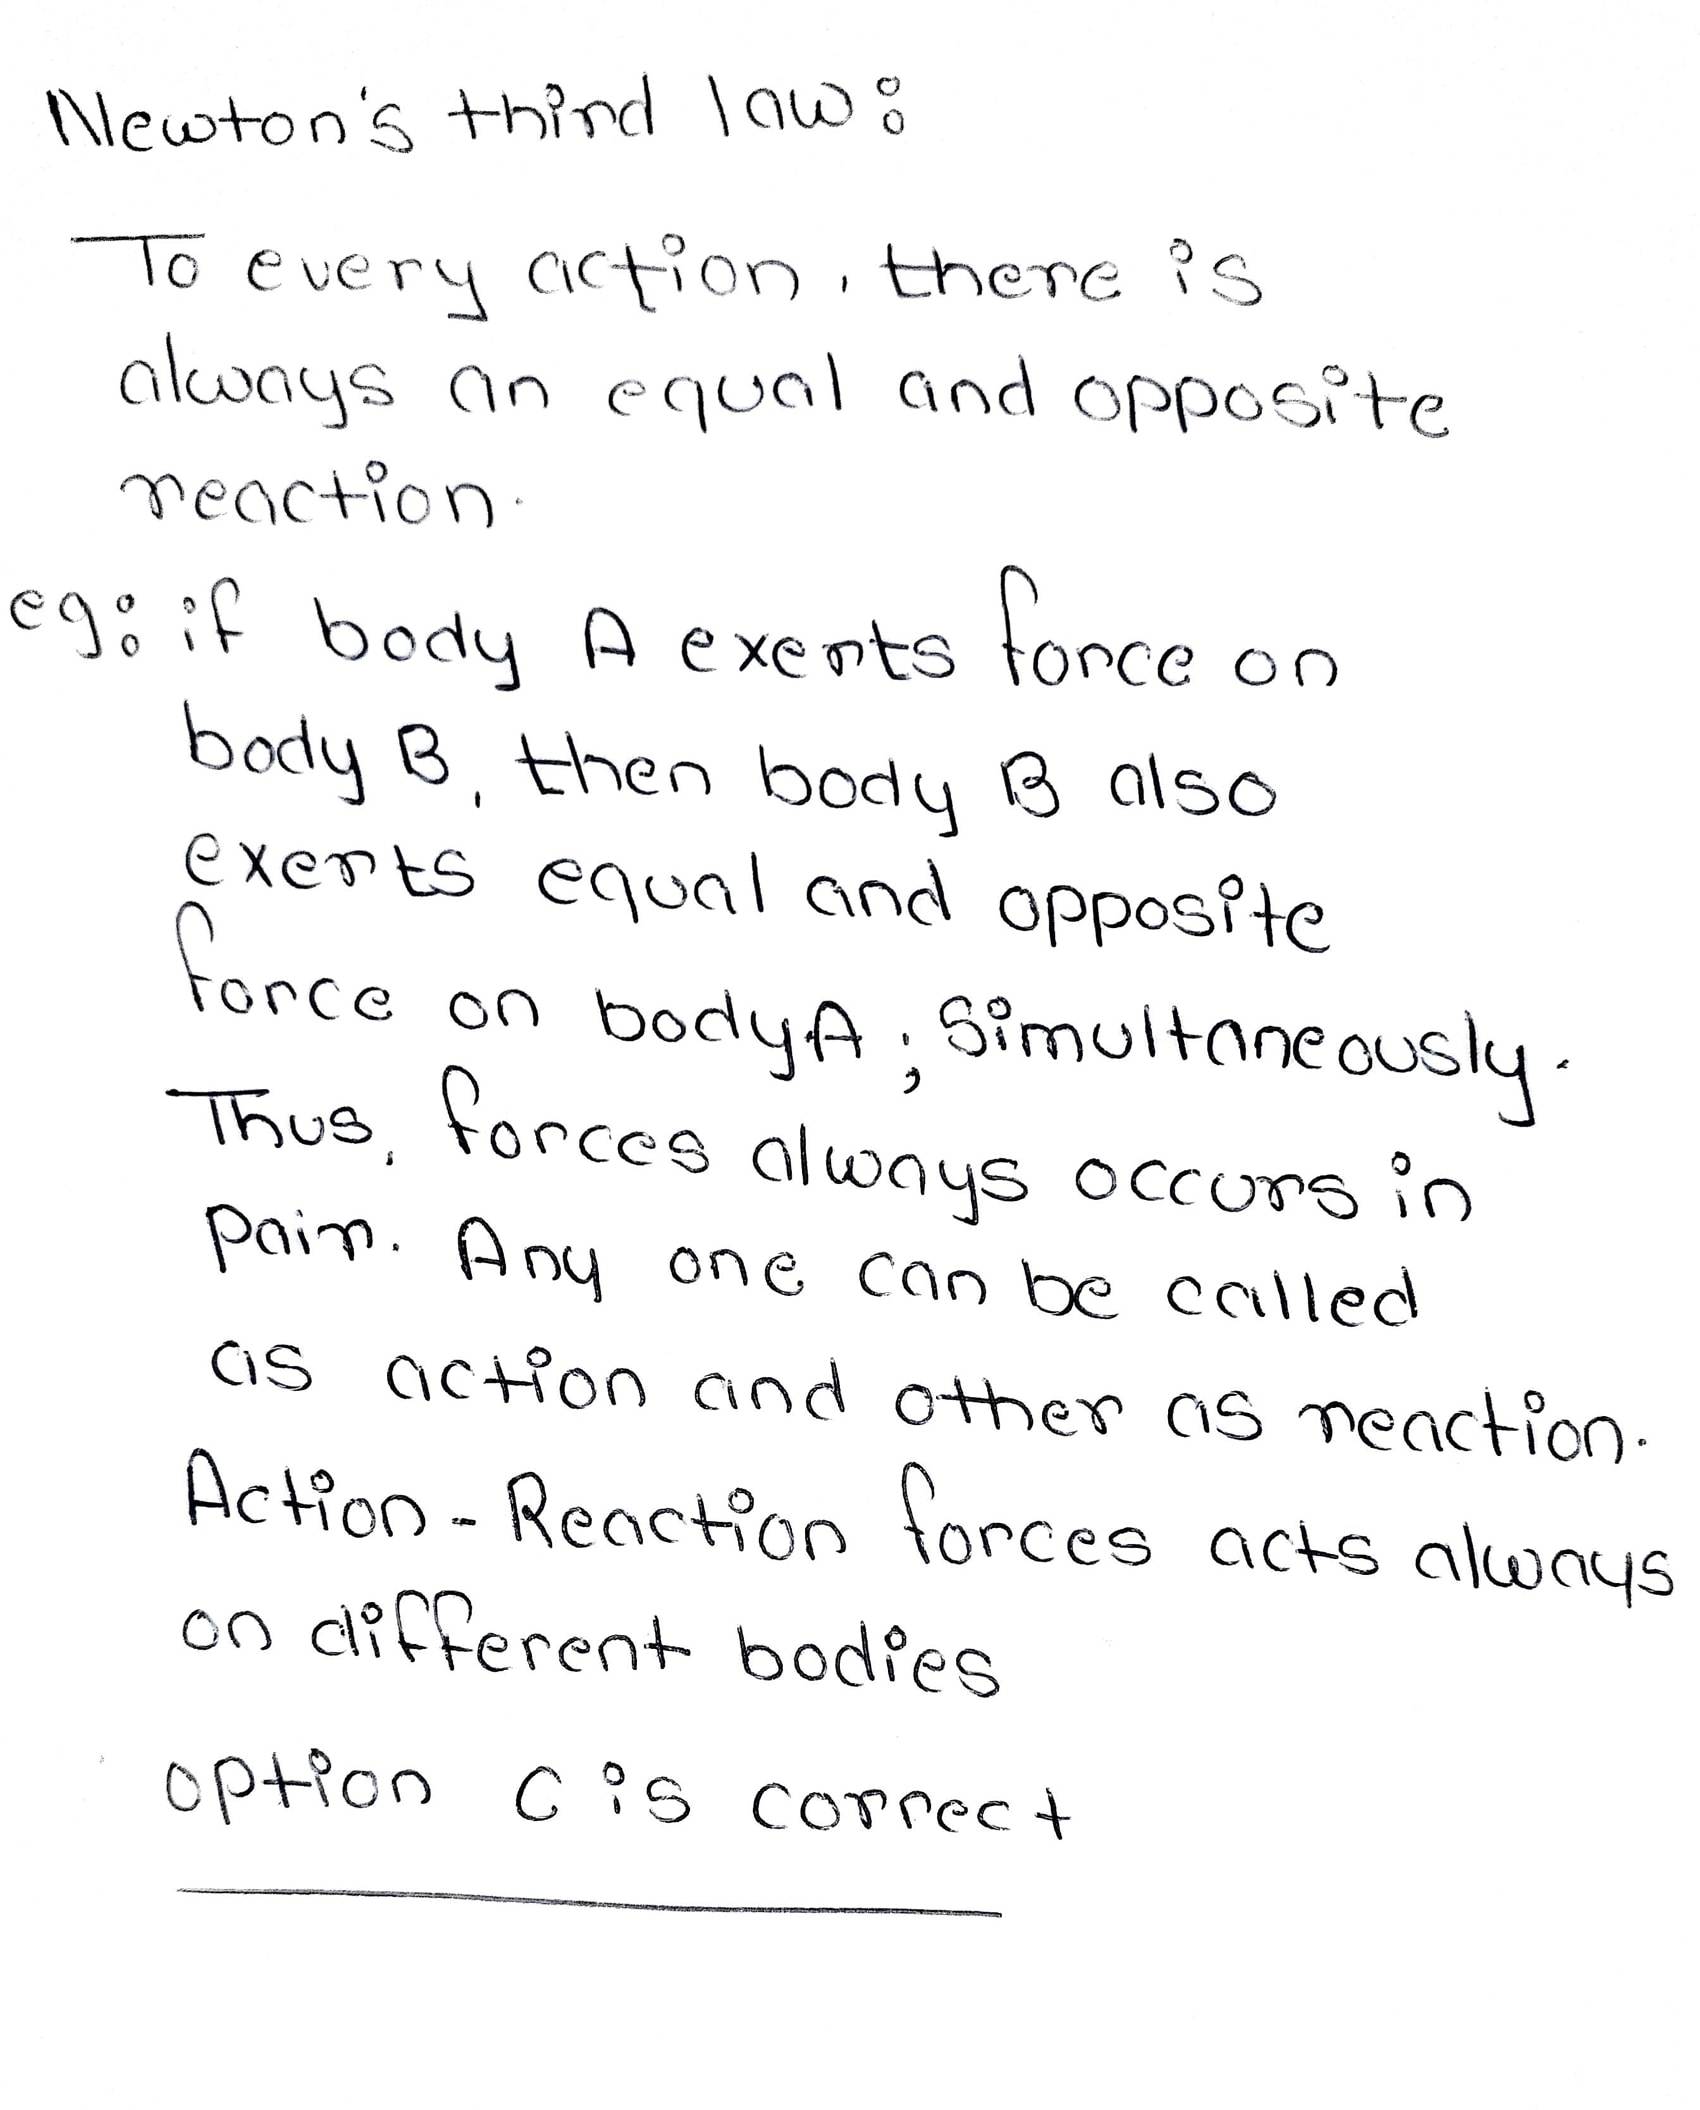 Newton's third law:
To every action, there is
always an equal and opposite
reaction.
eg: if body A exerts force on
body B, then body B also
exerts equal and opposite
force on body A ; Simultaneously.
Thus, forces always occurs in
pair. Any one can be called
as action and other as reaction.
Action - Reaction forces acts always
on different bodies
option C is correct